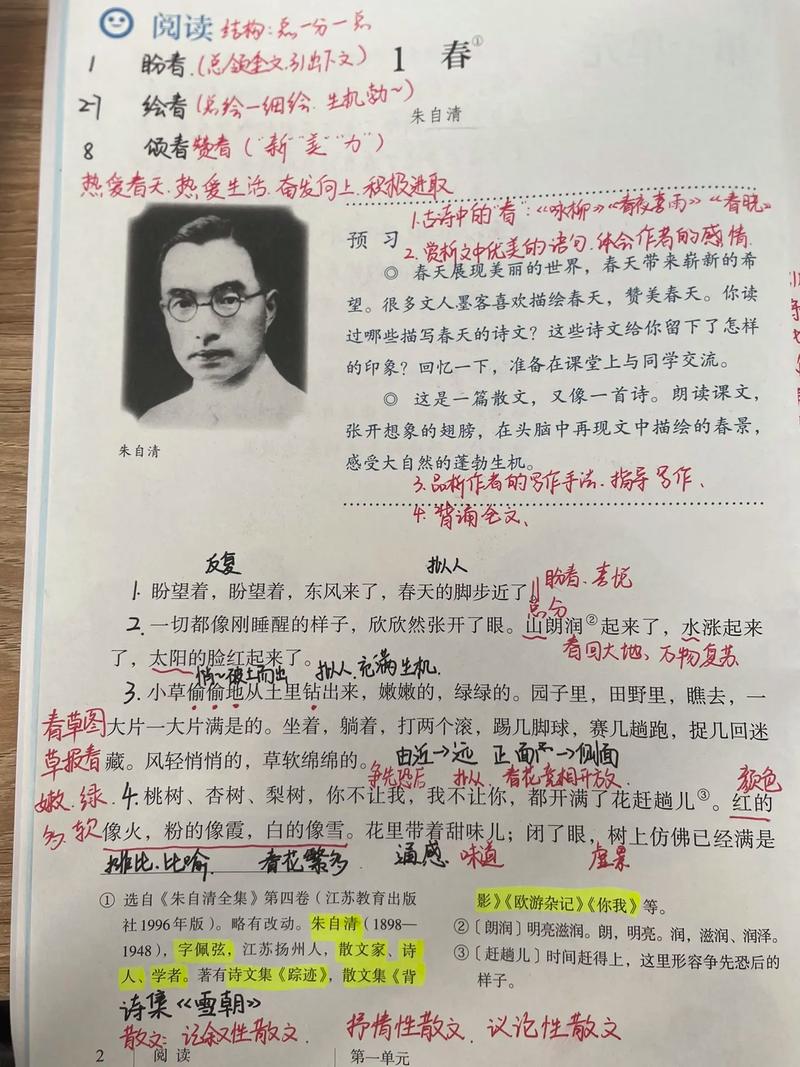 阅读 结构:总一分一总
1 盼春.(总领全文.引出下文)
1 春①
2-7 绘春(总绘一细绘.生机勃~)
朱自清
8 颂春赞春("新""美""力")
热爱春天.热爱生活.奋发向上.积极进取
1.古诗中的"春":《咏柳》《春夜喜雨》《春晓》
预习
2.赏析文中优美的语句.体会作者的感情.
◎ 春天展现美丽的世界，春天带来崭新的希
望。很多文人墨客喜欢描绘春天，赞美春天。你读
过哪些描写春天的诗文？这些诗文给你留下了怎样
的印象？回忆一下，准备在课堂上与同学交流。
◎ 这是一篇散文，又像一首诗。朗读课文，
张开想象的翅膀，在头脑中再现文中描绘的春景，
感受大自然的蓬勃生机。
朱自清
3.品析作者的写作手法.指导写作、
4.背诵全文、
反复 拟人
1.盼望着，盼望着，东风来了，春天的脚步近了 盼春.喜悦
总分
2.一切都像刚睡醒的样子，欣欣然张开了眼。山朗润②起来了，水涨起来
春回大地、万物复苏
了，太阳的脸红起来了。
悄~破土而出 拟人.充满生机.
3.小草偷偷地从土里钻出来，嫩嫩的，绿绿的。园子里，田野里，瞧去，一
春草图
大片一大片满是的。坐着，躺着，打两个滚，踢几脚球，赛几趟跑，捉几回迷
草报春
藏。风轻悄悄的，草软绵绵的。 由近→远
侧面
争先恐后 拟人. 春花竞相开放.
颜色
嫩.绿.
4.桃树、杏树、梨树，你不让我，我不让你，都开满了花赶趟儿③。红的
多.软
像火，粉的像霞，白的像雪。花里带着甜味儿；闭了眼，树上仿佛已经满是
排比.比喻 春花繁多 通感 味道 虚景
① 选自《朱自清全集》第四卷（江苏教育出版
社1996年版）。略有改动。朱自清（1898—
1948），字佩弦，江苏扬州人，散文家、诗
人、学者。著有诗文集《踪迹》，散文集《背
影》《欧游杂记》《你我》等。
②〔朗润〕明亮滋润。朗，明亮。润，滋润、润泽。
③〔赶趟儿〕时间赶得上，这里形容争先恐后的
样子。
诗集《雪朝》
散文:记叙性散文. 抒情性散文. 议论性散文
2 阅读 第一单元